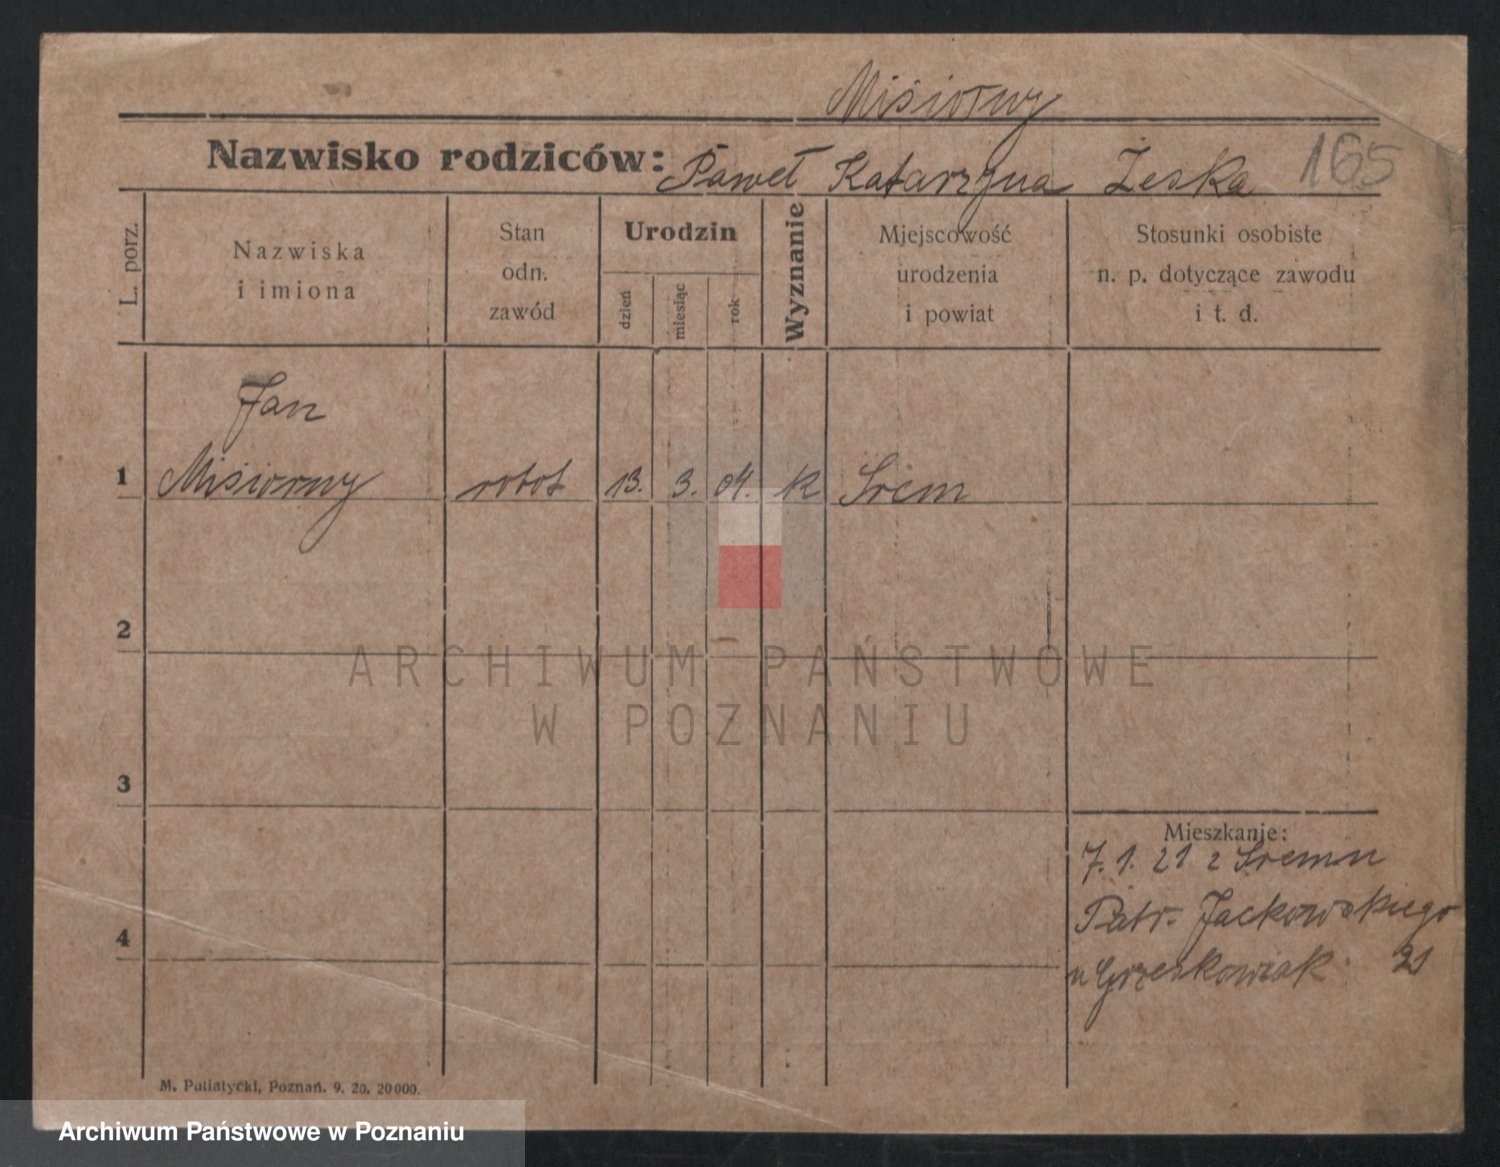 Misiorny
Nazwisko rodziców: Paweł Katarzyna Żeska 165
L. porz.
Nazwiska
i imiona
Stan
odn.
zawód
Urodzin
dzień
miesiąc
rok
Wyznanie
Miejscowość
urodzenia
i powiat
Stosunki osobiste
n. p. dotyczące zawodu
i t. d.
Jan
1 Misiorny robot 13. 3. 04. k Śrem
2
3
4
Mieszkanie:
7. 1. 21 z Śremu
Patr. Jackowskiego
u Grześkowiak 21
M. Putiatycki, Poznań. 9. 20. 20000.
ARCHIWUM PAŃSTWOWE
W POZNANIU
Archiwum Państwowe w Poznaniu